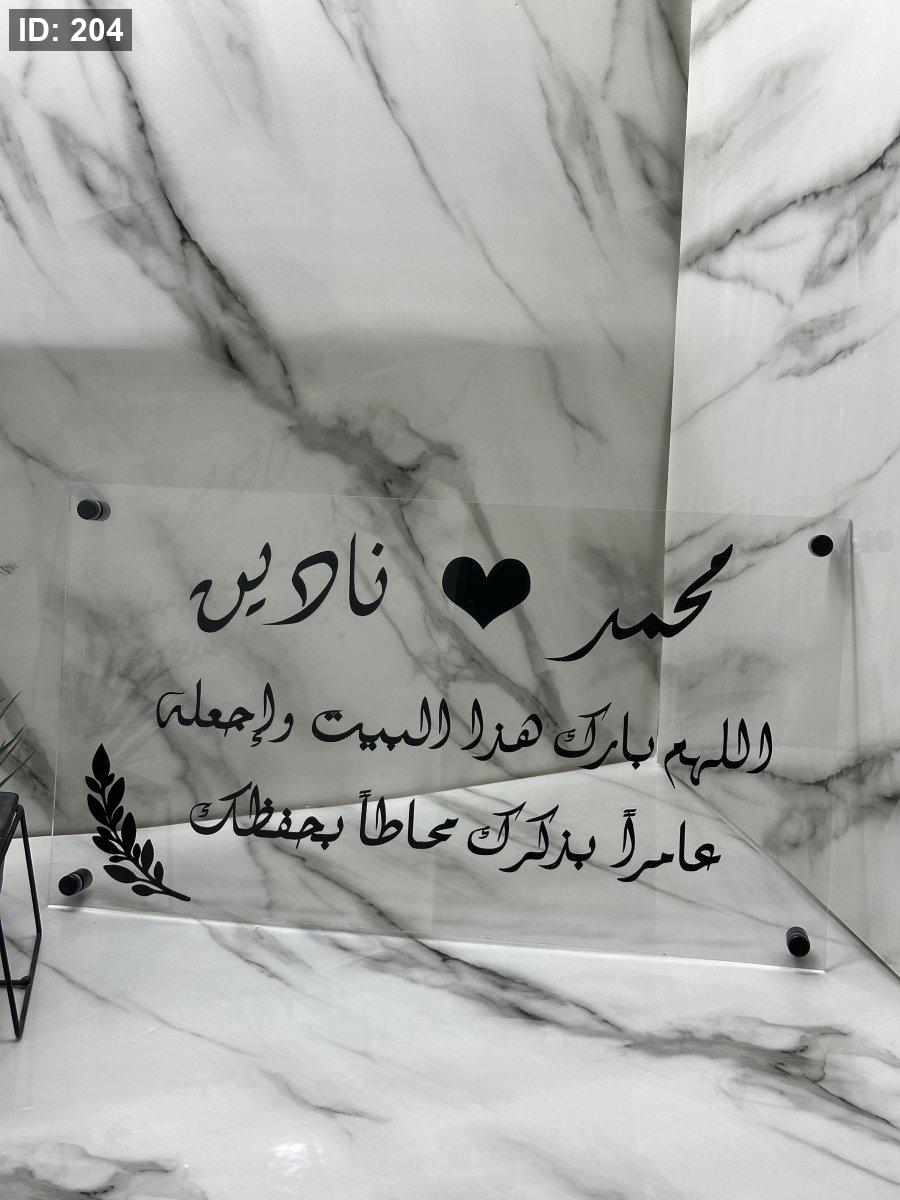 ID: 204
محمد ♥ نادين
اللهم بارك هذا البيت وإجعله
عامراً بذكرك محاطاً بحفظك